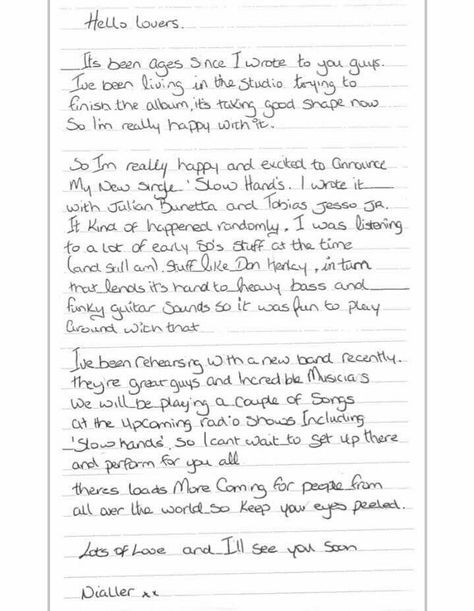 Hello lovers.
Its been ages since I wrote to you guys.
Ive been living in the studio trying to
finish the album, its taking good shape now
So I'm really happy with it.
So Im really happy and excited to announce
My New single 'Slow Hands'. I wrote it
with Julian Bunetta and Tobias Jesso Jr.
It Kind of happened randomly, I was listening
to a lot of early 80's stuff at the time
(and still am). Stuff like Don Henley, in turn
that lends it's hand to heavy bass and
funky guitar sounds so it was fun to play
around with that
Ive been rehearsing with a new band recently.
theyre great guys and Incredible Musicia s
We will be playing a couple of Songs
at the upcoming radio shows Including
'Slow hands'. So I cant wait to get up there
and perform for you all
theres loads More Coming for people from
all over the world so keep your eyes peeled.
Lots of Love and I'll see you soon
Nialler xx